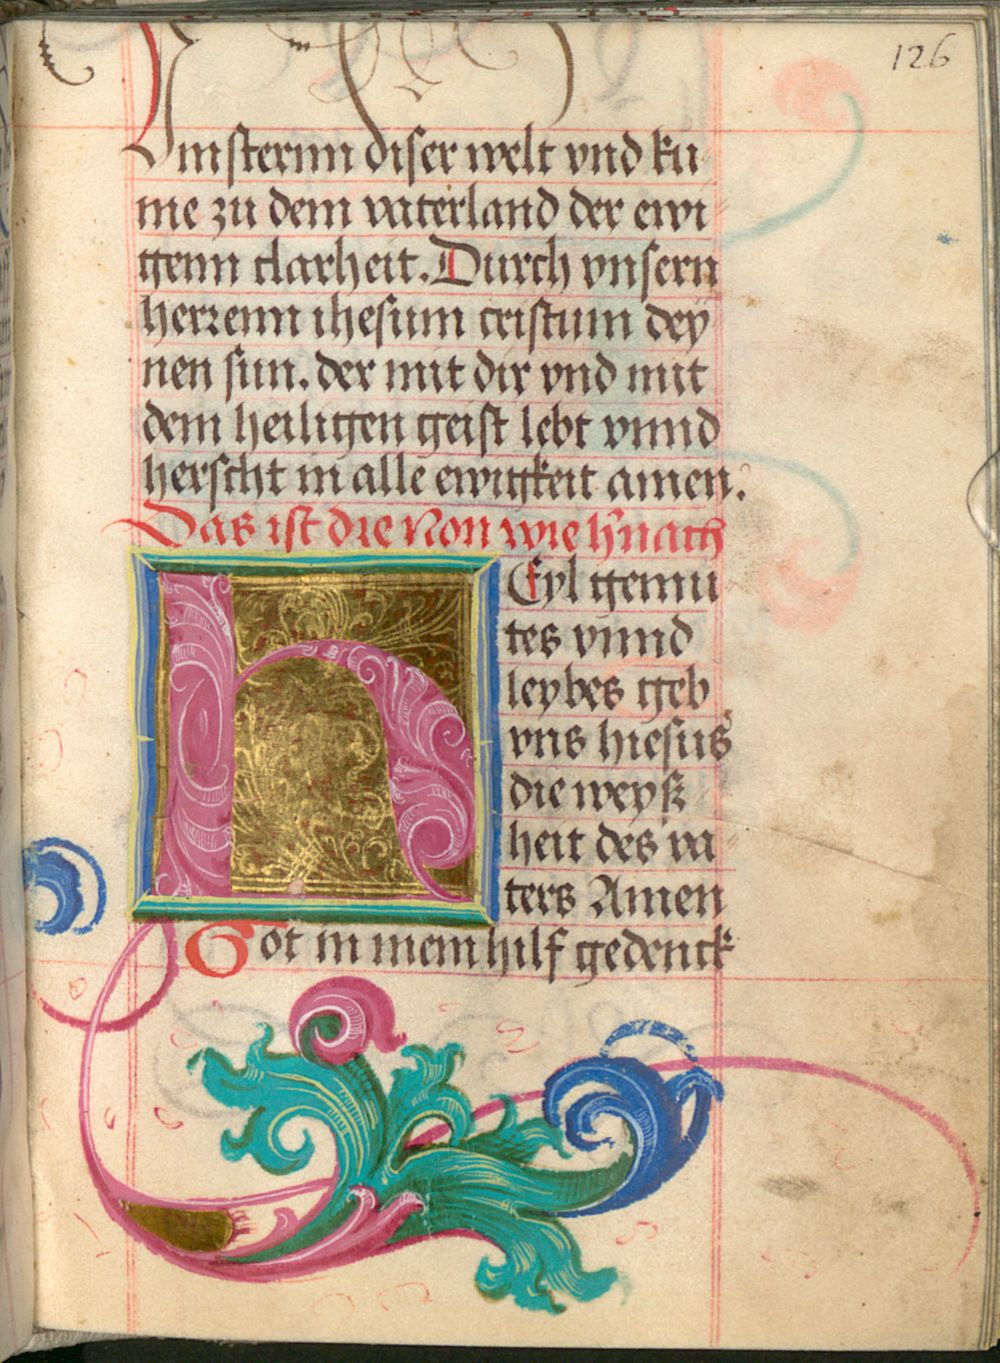 126
vinsternn diser welt vnd ku
me zu dem vaterland der ewi
genn clarheit. Durch vnsern
herrenn ihesum cristum dey
nen sun. der mit dir vnd mit
dem heiligen geist lebt vnnd
herscht in alle ewigkeit amen.
Das ist die Non wie h'nach
HEyl gemu
tes vnnd
leybes geb
vns hiesus
die weyß
heit des va
ters Amen
Got in mein hilf gedenck